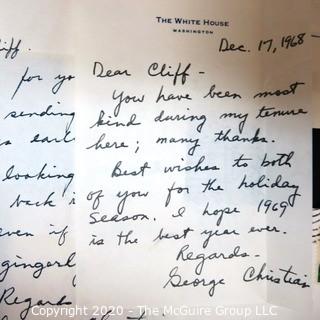 THE WHITE HOUSE
WASHINGTON
Dec. 17, 1968
Dear Cliff -
You have been most
kind during my tenure
here; many thanks.
Best wishes to both
of you for the holiday
Season. I hope 1969
is the best year ever.
Regards -
George Christian
Cliff.
for yo
sending
earl
looking
back i
even if
gingerl
Regards
Copyright 2020 - The McGuire Group LLC